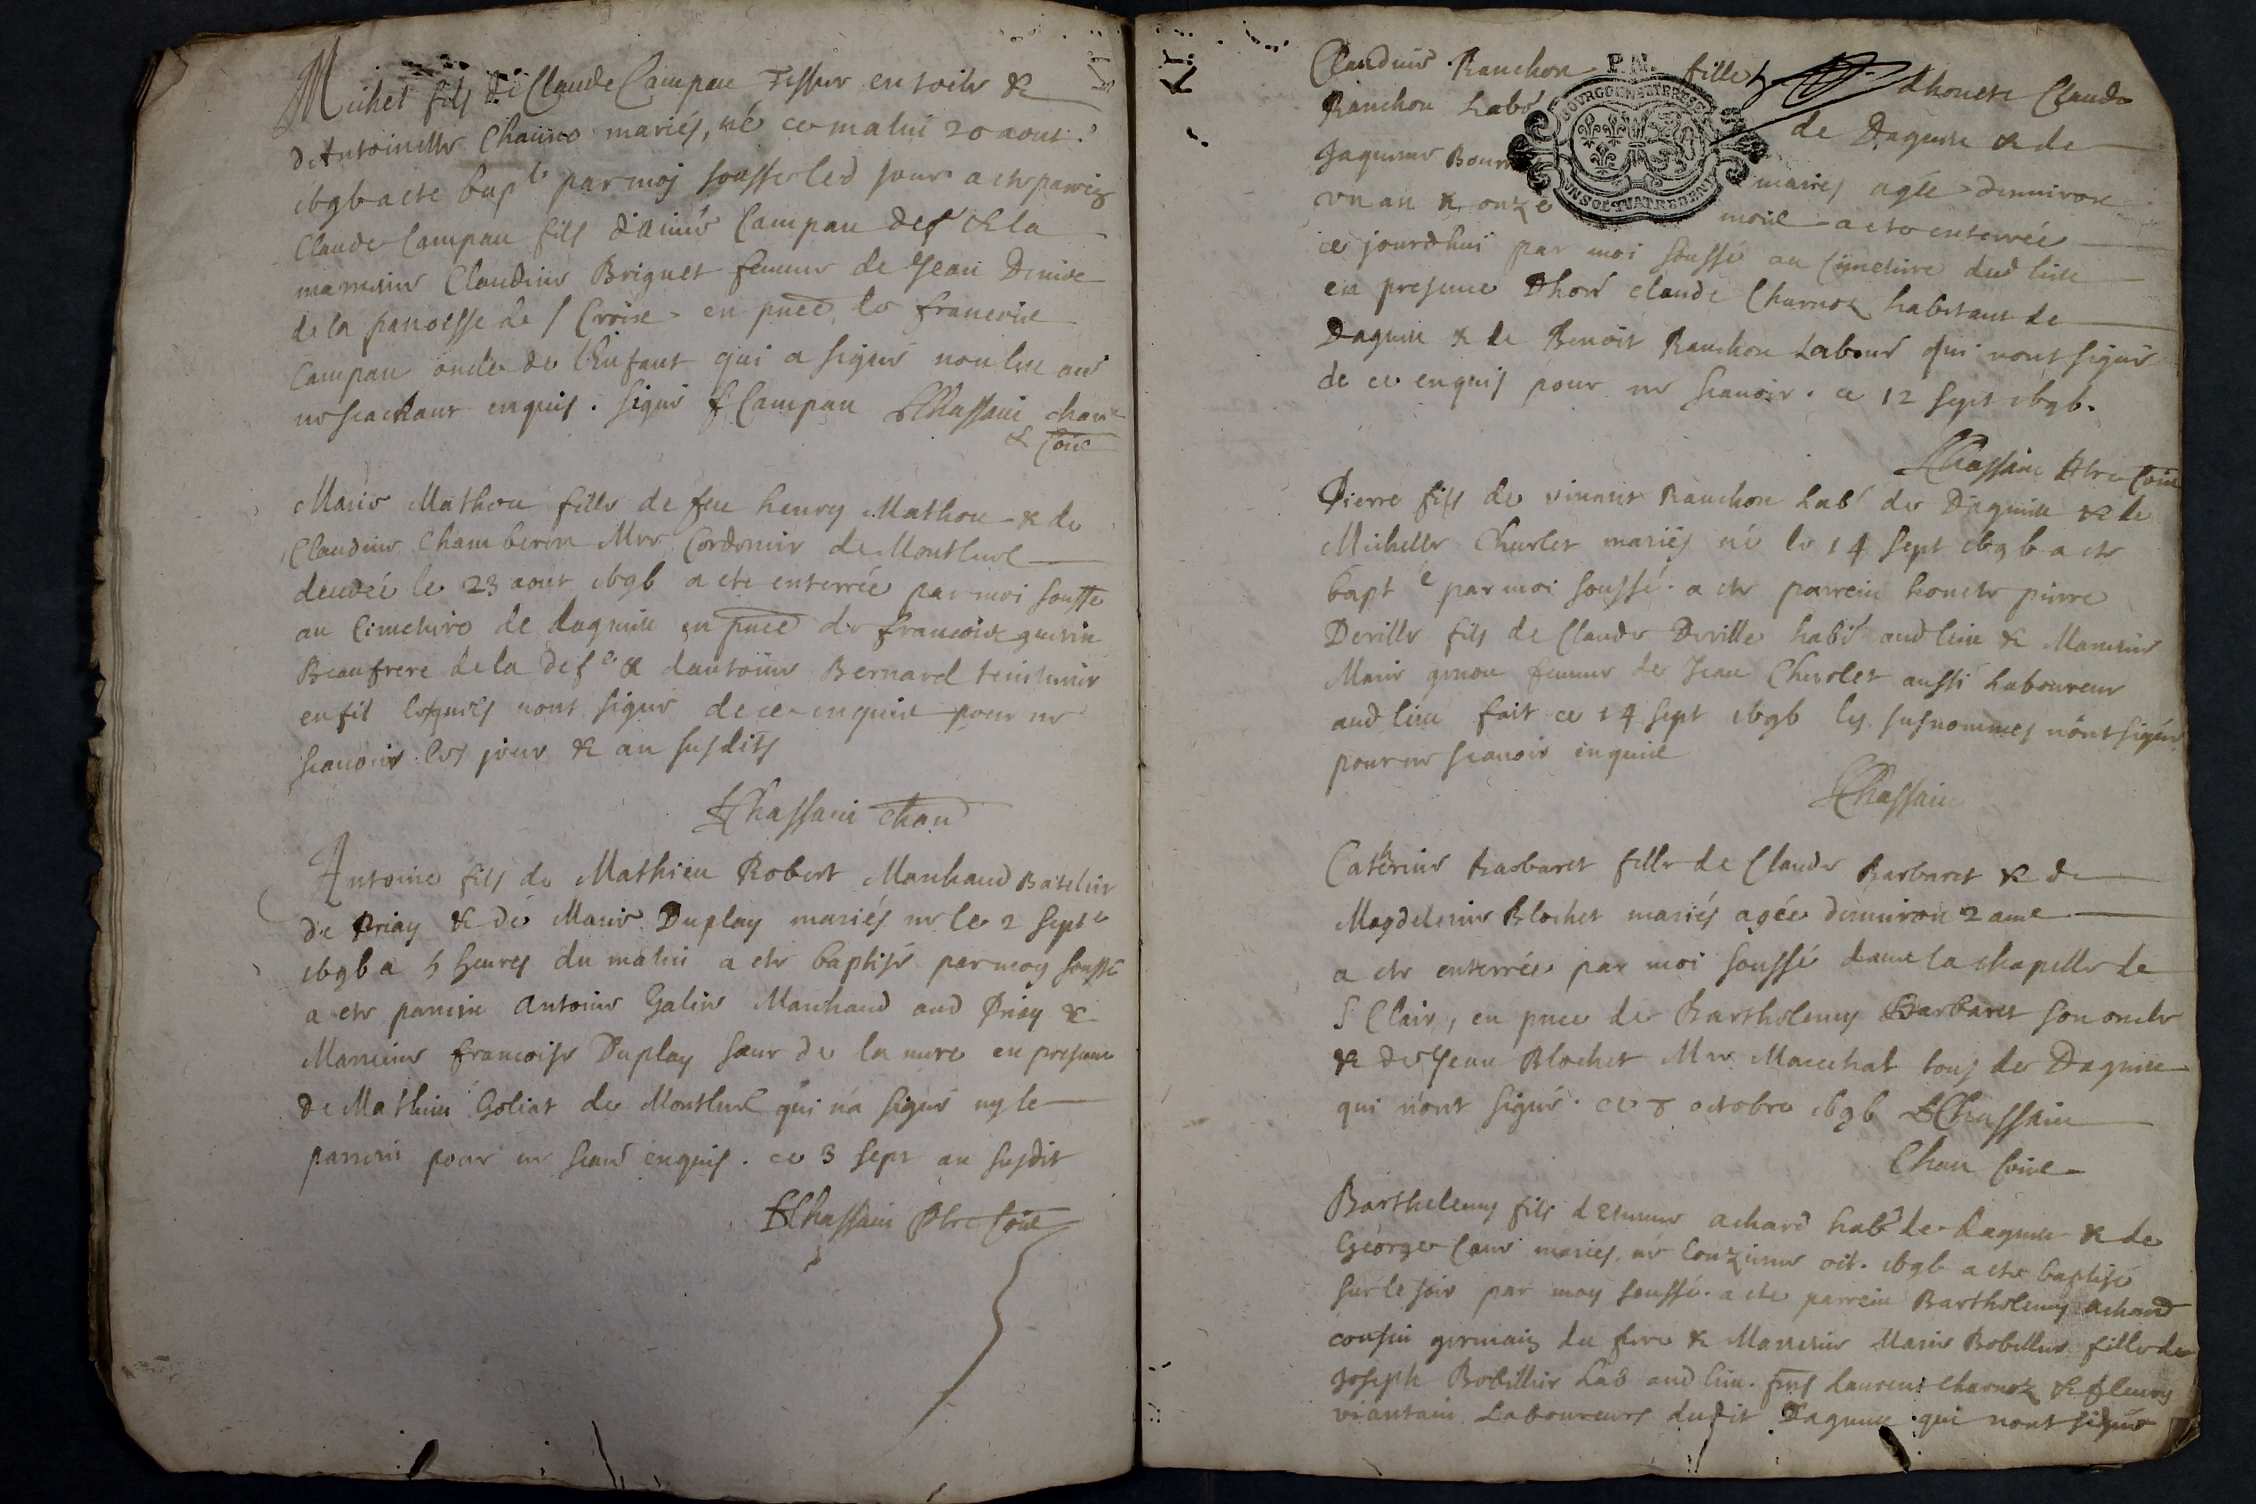 Michel fils de Claude Campan Tissier en toile &
dAntoinette Chaine mariés, né ce matin 20 aout
1696 a ete bapt. par moy soussé led jour a ete parrein
Claude Campan fils daimé Campan def & la
marreine Claudine Briguet femme de Jean Denise
de la parroisse de s Croix en pnce de francoise
Campan oncle de l'Enfant qui a signé non les autres
ne scachant enquis. Signé f Campan Chassain chan
& Curé
Marie Mathon fille de feu henry Mathon & de
Claudine Chamberon Mre Cordonier de Montluel
decedée le 23 aout 1696 a ete enterrée par moi soussé
au Cimetiere de dagnieu en pnce de francoise guerin
Beaufrere de la def & dantoine Bernard teinturier
en fil lesquels nont signé de ce enquis pour ne
scavoir les jour & an susdits
Chassain chan
Antoine fils de Mathieu Robert Marchand Batelier
de Priay & de Marie Duplay mariés né le 2 septe
1696 a 5 heures du matin a ete baptisé par moy soussé
a ete parrein Antoine Galin Marchand aud Priay &
Marreine francoise Duplay sœur de la mere en presence
de Mathieu Goliat de Montluel qui n'a signé ny le
parrein pour ne scavr enquis. ce 3 sept an susdit
Chassain Ptre Curé
Claudine Ranchon fille dhoneste Claude
Ranchon Labr de Dagnieu & de
Jaqueme Bour mariés agée denviron
un an & onze mois a ete enterrée
ce jourdhui par moi soussé au Cimetiere dud lieu
en presence Dhon Claude Charnoz habitant de
Dagnieu & de Benoit Ranchon Labour qui nont signé
de ce enquis pour ne scavoir. ce 12 sept 1696.
Chassain Ptre Curé
Pierre fils de vinant Ranchon Labr de Dagnieu & de
Michelle Charlet mariés né le 14 sept 1696 a ete
bapt e par moi soussé. a ete parrein honeste pierre
Deville fils de Claude Deville habit aud lieu & Marreine
Marie femme de Jean Cheuolet aussi Laboureur
aud lieu fait ce 14 sept 1696 les susnommes nont signé
pour ne scavoir enquis
Chassain
Caterine Barbaret fille de Claude Barbaret & de
Magdeleine Blochet mariés agée denviron 2 ans
a ete enterrée par moi soussé dans la chapelle de
S Clair, en pnce de Bartholemy Barbaret son oncle
& de Jean Blochet Mre Marechal tous de Dagnieu
qui n'ont signé. ce 8 octobre 1696 Chassain
Chan Curé
Barthelemy fils dEtienne achard habt de dagnieu & de
George mariés né lonzieme oct. 1696 a ete baptisé
sur le soir par moy soussé. a ete parrein Bartholemy Achard
cousin germain du pere & Marreine Marie Bobillier fille de
Joseph Bobillier Lab aud lieu. pns Laurent charnoz & fleury
viantain Laboureurs dudit Dagnieu qui nont signé